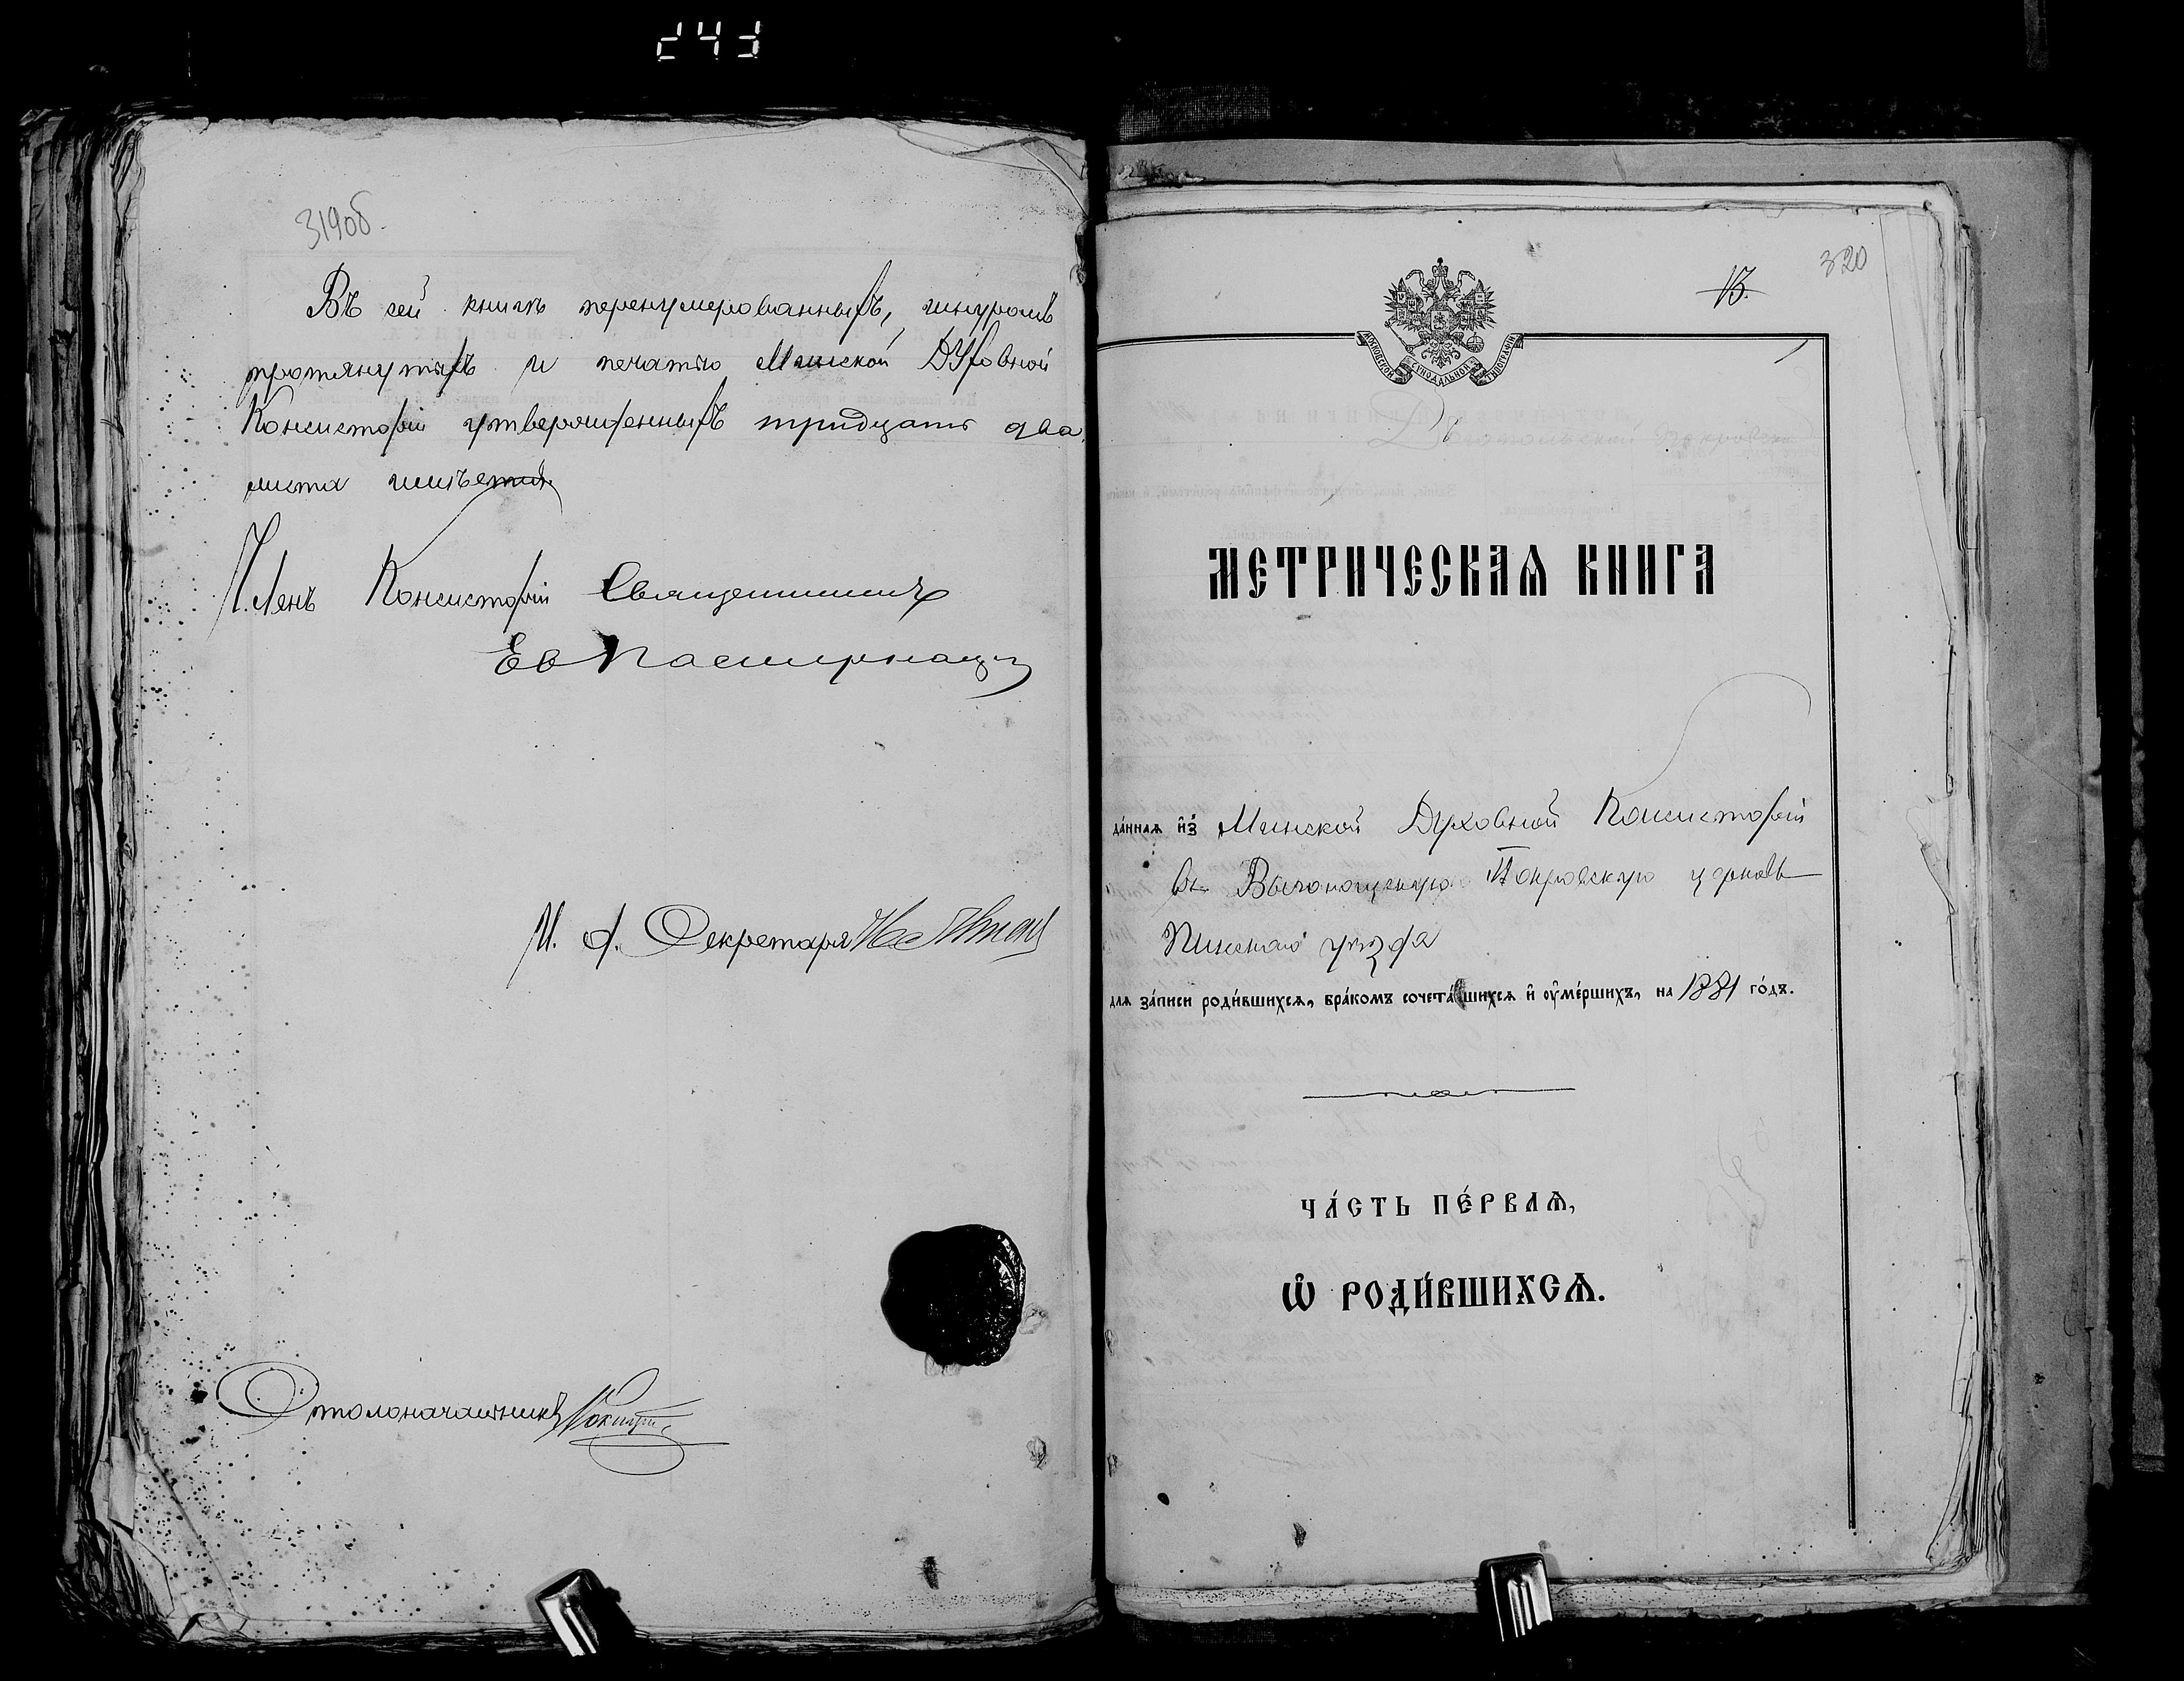 243
319об.
Въ сей книгѣ перенумерованныхъ, шнуромъ
протянутыхъ и печатью Минской Духовной
Консисторіи утвержденныхъ тридцать два
листа имѣется.
Членъ Консисторіи Священникъ
И. д. Секретаря
Столоначальникъ
320
13.
МОСКОВСКОЙ СѴНОДАЛЬНОЙ ТИПОГРАФІИ
МЕТРИЧЕСКАЯ КНИГА
да́ннаѧ и҆з̾ Минской Духовной Консисторіи
въ Выгонощскую Покровскую церковь
Пинскаго уѣзда
длѧ за́писи роди́вшихсѧ, бра́комъ сочета́вшихсѧ и҆ ᲂу҆ме́ршихъ, на 1881 го́дъ.
ЧА́СТЬ ПЕ́РВАѦ,
Ѽ РОДИ́ВШИХСѦ.